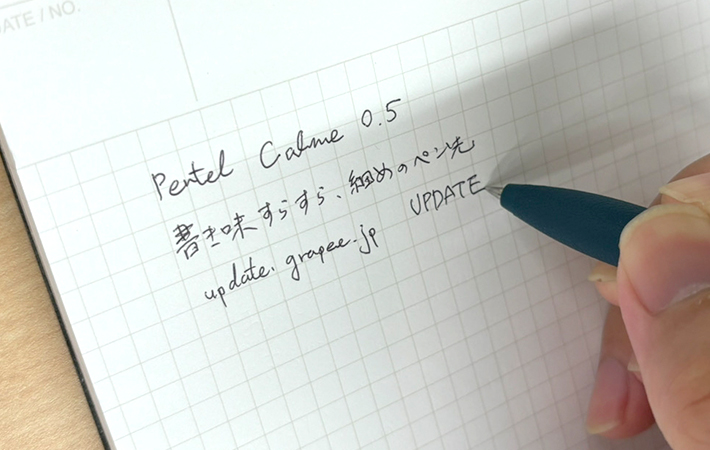 DATE / NO.
Pentel Calme 0.5
書き味すらすら、細めのペン先
update.grapee.jp UPDATE